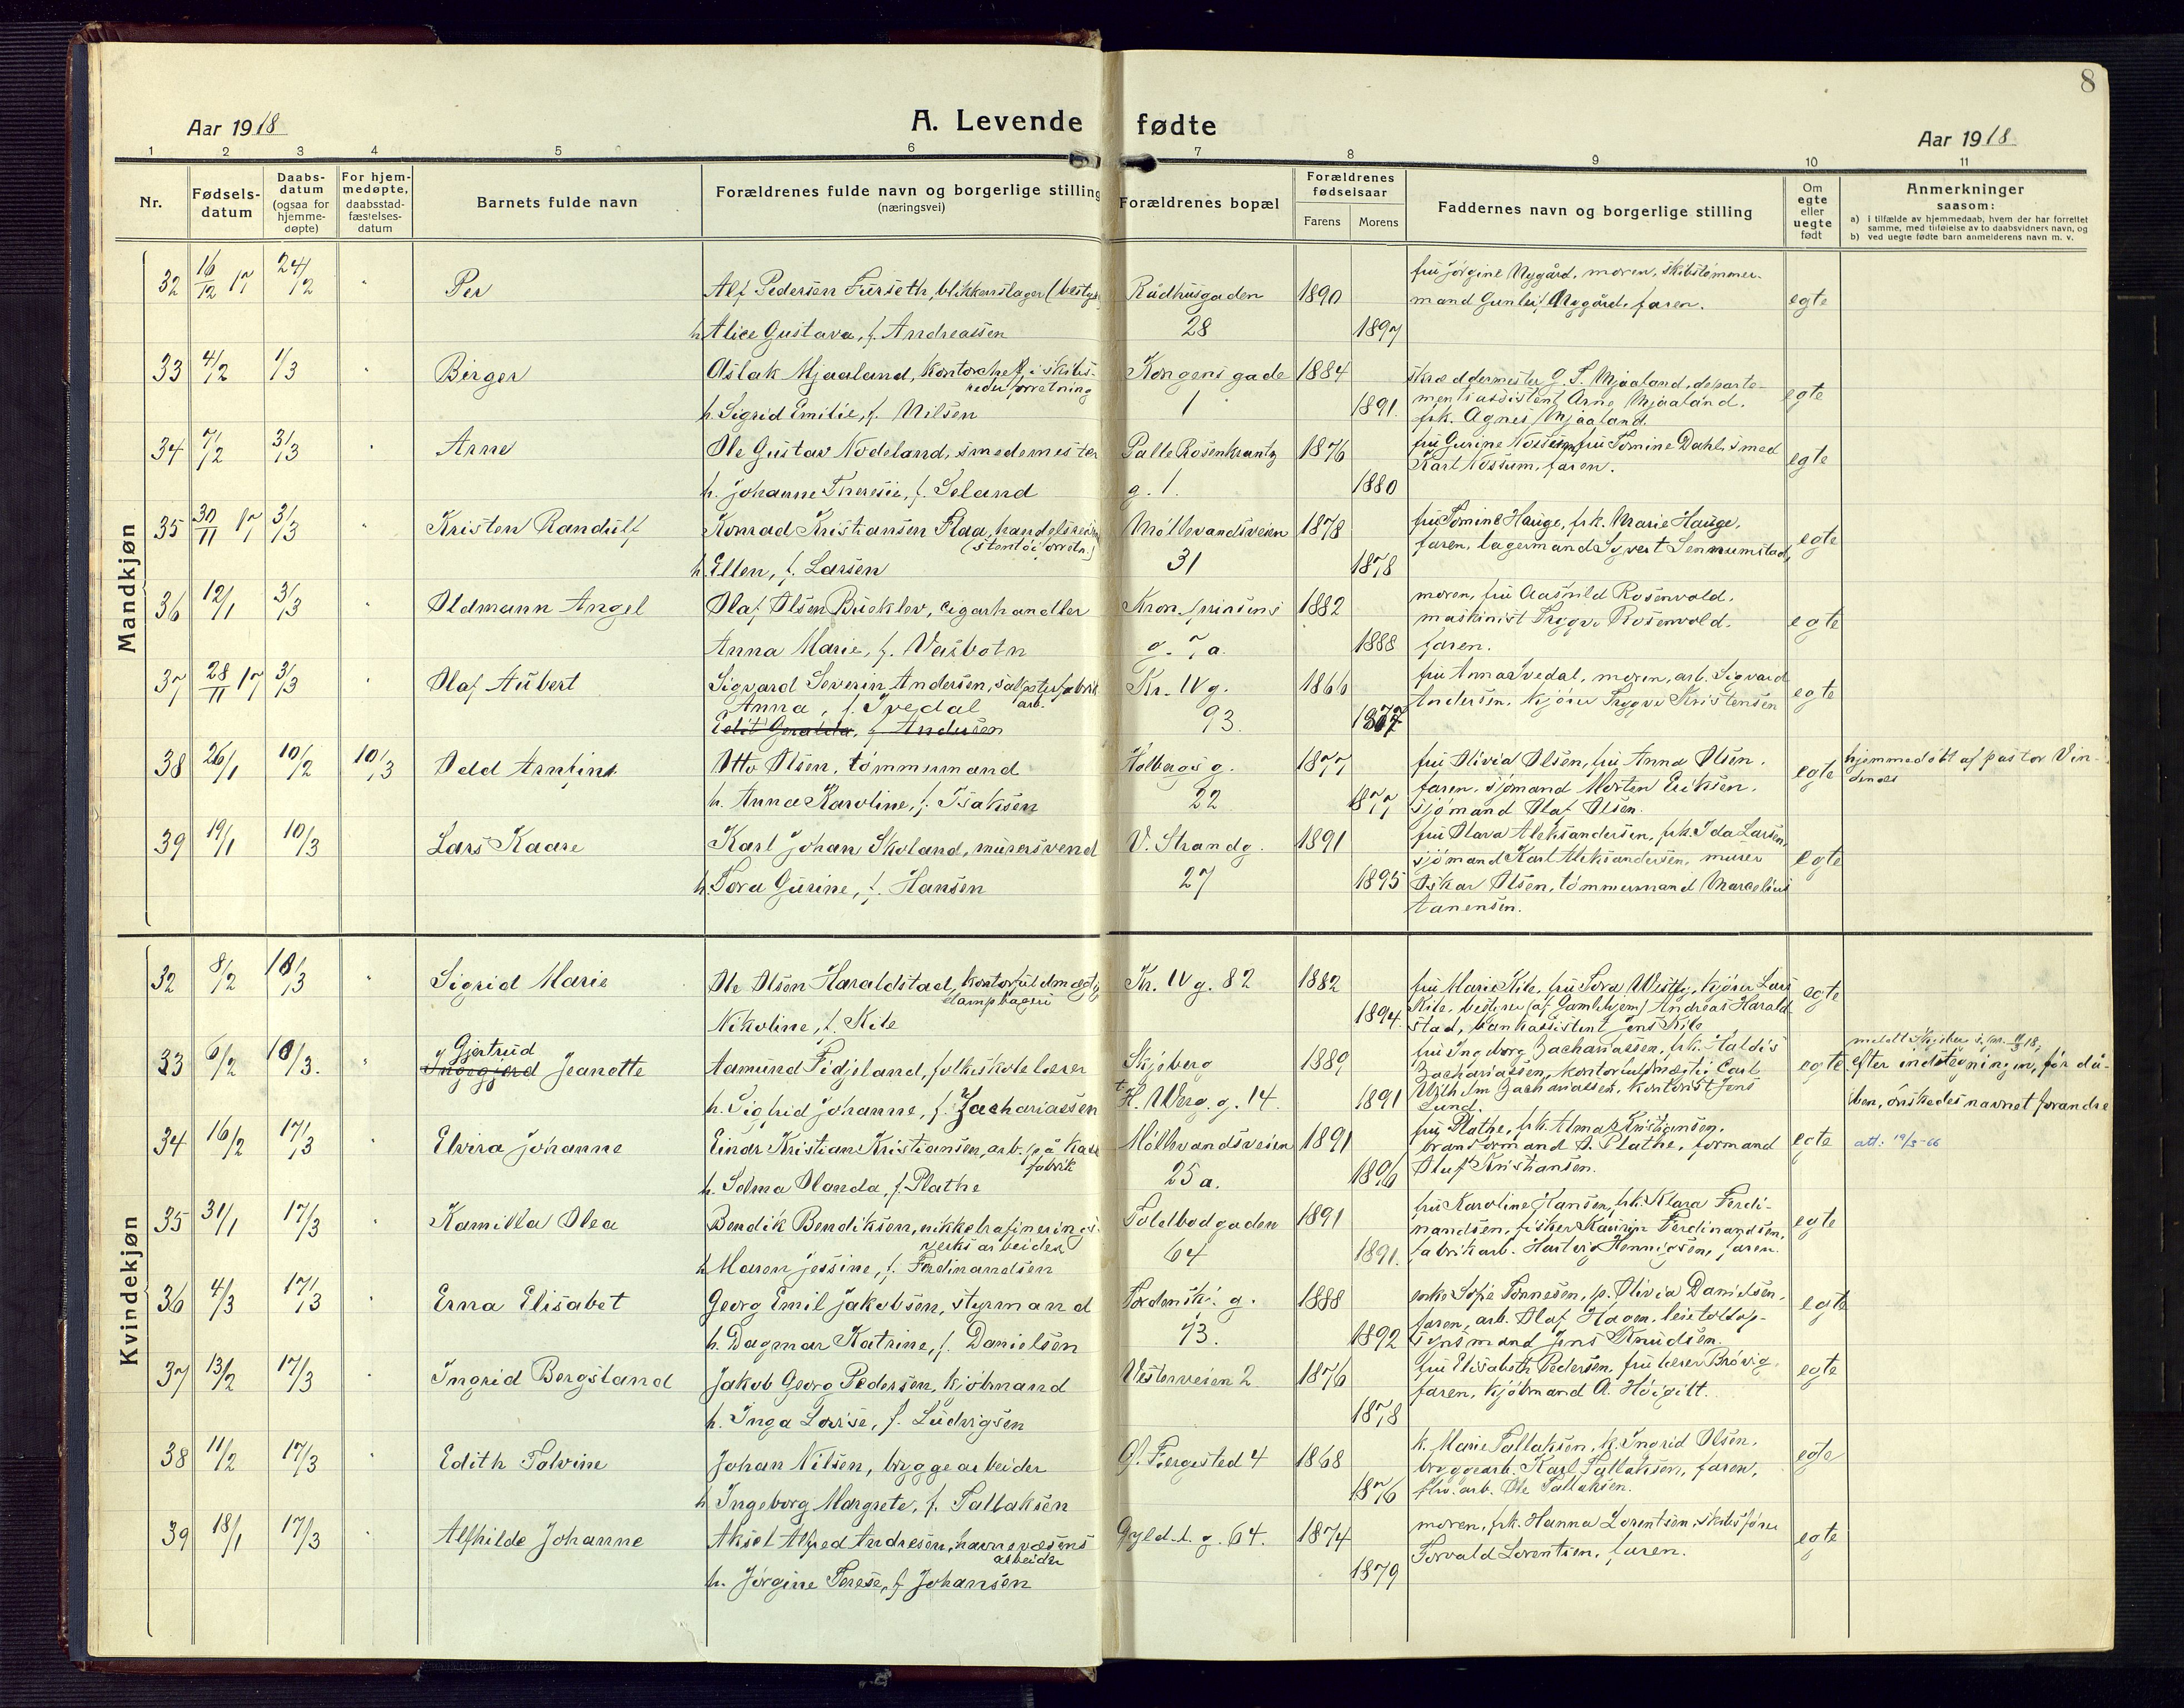 8
Aar 1918
A. Levende fødte
Aar 1918
1 2 3 4 5 6 7 8 9 10 11
Nr.
Fødsels-
datum
Daabs-
datum
(ogsaa for
hjemme-
døpte)
For hjem-
medøpte,
daabsstad-
fæstelses-
datum
Barnets fulde navn
Forældrenes fulde navn og borgerlige stilling
(næringsvei)
Forældrenes bopæl
Forældrenes
fødselsaar
Farens Morens
Faddernes navn og borgerlige stilling
Om
egte
eller
uegte
født
Anmerkninger
saasom:
a) i tilfælde av hjemmedaab, hvem der har forrettet
samme, med tilføielse av to daabsvidners navn, og
b) ved uegte fødte barn anmelderens navn m. v.
Mandkjøn
32 16/12 17 24/2 " Per
Alf Pedersen Furseth, blikkenslager (bestyr
h. Alice Gustava, f. Andreassen
Rådhusgaden
28
1890
1897
fru Jørgine Nygård, moren, skibstømmer-
mand Gunleif Nygård, faren.
egte
33 4/2 1/3 " Birger
Aslak Mjaaland, kontorchef i skibs-
rederforretning
h. Sigrid Emilie, f. Nilsen
Kongens gade
1
1884
1891
skræddermester G. T. Mjaaland, departe-
mentsassistent Arne Mjaaland,
frk. Agnes Mjaaland.
egte
34 7/2 3/3 " Arne
Ole Gustav Nodeland, smedemester
h. Johanne Theresie, f. Seland
Palle Rosenkrantz
g. 1.
1876
1880
fru Gurine Nossum, fru Tomine Dahl, smed
Karl Nossum, faren.
egte
35 30/11 17 3/3 " Kristen Randulf
Konrad Kristiansen Flaa, handelsreisen
(stentøiforretn.)
h. Ellen, f. Larsen
Møllevandsveien
31
1878
1878
fru Tomine Hauge, frk. Marie Hauge,
faren, lagermand Syvert Sennumstad,
egte
36 12/1 3/3 " Oldmann Angel
Olaf Olsen Bueklev, cigarhandler
Anna Marie, f. Veisbotn
Kronprinsens
g. 7 a.
1882
1888
moren, fru Aashild Rosenvold,
maskinist Trygve Rosenvold,
faren.
egte
37 28/11 17 3/3 " Olaf Aubert
Sigvard Severin Andersen, salpeterfabrik
arb.
Anna, f. Ivedal
f. Andersen
Kr. IV g.
93.
1866
1877
fru Anna Ivedal, moren, arb. Sigvard
Andersen, kjører Trygve Kristensen
egte
38 26/1 10/2 10/3 Odd Arnfinn
Otto Olsen, tømmermand
h. Anna Karoline, f. Isaksen
Holbergs g.
22
1877
1877
fru Olivia Olsen, fru Anna Olsen,
faren, sjømand Morten Eriksen,
sjømand Olaf Olsen.
egte
hjemmedøbt af pastor Vin-
denes
39 19/1 10/3 Lars Kaare
Karl Johan Skoland, murersvend
h. Tora Gurine, f. Hansen
V. Strandg.
27
1891
1895
fru Olava Aleksandersen, frk. Ida Larsen,
sjømand Karl Aleksandersen, murer
Oskar Olsen, tømmermand Marcelius
Aanensen.
egte
Kvindekjøn
32 8/2 10/3 " Sigrid Marie
Ole Olsen Haraldstad, kontorfuldmægtig
dampbageri
Nikoline, f. Kile
Kr. IV g. 82
1882
1894.
fru Marie Kile, fru Tora Westby, kjører Lars
Kile, bestyrer (af Gamlehjem) Andreas Harald-
stad, bankassistent Jens Kile
egte
33 6/2 10/3. " Gjertrud
Ingegjerd Jeanette
Aamund Fidjeland, folkeskolelærer
h. Sighrid Johanne, f. Zachariassen
Skjøberg
H. Werg. g. 14.
1889
1891
fru Ingeborg Zachariassen, frk. Haldis
Zachariassen, kontorfuldmægtig Carl
Wilhelm Zachariassen, kontorist Jens
Lund.
egte
efter indstegningen, før då-
ben, ønskedes navnet forandre
34 16/2 17/3 " Elvira Johanne
Einar Kristian Kristiansen, arb. på kas
fabrik
h. Selma Olanda, f. Plathe
Møllevandsveien
25 a.
1891
1896
fru Plathe, frk. Alma Kristiansen,
brandformand O. Plathe, formand
Oluf Kristiansen.
egte
att. 19/5-66
35 31/1 17/3 " Kamilla Olea
Bendik Bendiksen, nikkelrafinerings-
verksarbeider
h. Maren Jessine, f. Ferdinandsen
Toldbodgaden
64
1891
1891.
fru Karoline Hansen, frk. Klara Ferdi-
nandsen, fisker Kaurin Ferdinandsen,
fabrikarb. Hartvig Henrigsen, faren.
egte
36 4/3 17/3 " Erna Elisabet
Georg Emil Jakobsen, styrmand
h. Dagmar Katrine, f. Danielsen
Tordensk. g.
73.
1888
1892
enke Sofie Tønnesen, p. Olivia Danielsen,
faren, arb. Olaf Hagen, leietoldop-
synsmand Jens Knudsen.
egte
37 13/2 17/3 " Ingrid Bergsland
Jakob Georg Pedersen, kjøbmand
h. Inga Lovise, f. Ludvigsen
Vesterveien 2
1876
1878
fru Elisabeth Pedersen, fru Brøvig,
faren, kjøbmand A. Høigilt.
egte
38 11/2 17/3 " Edith Talvine
Johan Nilsen, bryggearbeider
h. Ingeborg Margrete, f. Tallaksen
Gl. Fergested 4
1868
1876
h. Marie Tallaksen, h. Ingrid Olsen,
bryggearb. Karl Tallaksen, faren,
elv. arb. Ole Tallaksen.
egte
39 18/1 17/3 " Alfhilde Johanne
Aksel Alfred Andresen, havnevæsens
arbeider
h. Jørgine Terese, f. Johansen
Gyld.l. g. 64.
1874
1879
moren, frk. Hanna Lorentsen, skibsfører
Torvald Lorentsen, faren.
egte